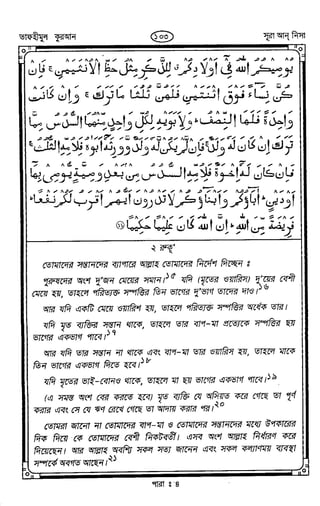 তাফহীমুল কুরআন
১০৩
সূরা আন্ নিসা
يُوصِيكُمُ اللهُ فِي أَوْلَادِكُمْ لِلذَّكَرِ مِثْلُ حَظِّ الْأُنْثَيَيْنِ فَإِنْ
كُنَّ نِسَاءً فَوْقَ اثْنَتَيْنِ فَلَهُنَّ ثُلُثَا مَا تَرَكَ وَإِنْ كَانَتْ
وَاحِدَةً فَلَهَا النِّصْفُ وَلِأَبَوَيْهِ لِكُلِّ وَاحِدٍ مِنْهُمَا السُّدُسُ مِمَّا
تَرَكَ إِنْ كَانَ لَهُ وَلَدٌ فَإِنْ لَمْ يَكُنْ لَهُ وَلَدٌ وَوَرِثَهُ أَبَوَاهُ فَلِأُمِّهِ الثُّلُثُ
فَإِنْ كَانَ لَهُ إِخْوَةٌ فَلِأُمِّهِ السُّدُسُ مِنْ بَعْدِ وَصِيَّةٍ يُوصِي بِهَا
أَوْ دَيْنٍ آبَاؤُكُمْ وَأَبْنَاؤُكُمْ لَا تَدْرُونَ أَيُّهُمْ أَقْرَبُ لَكُمْ نَفْعًا
فَرِيضَةً مِنَ اللهِ إِنَّ اللهَ كَانَ عَلِيمًا حَكِيمًا ⑪
২ রুকূ'
তোমাদের সন্তানদের ব্যাপারে আল্লাহ তোমাদের নির্দেশ দিচ্ছেন ঃ
পুরুষদের অংশ দু'জন মেয়ের সমান।১৫ যদি (মৃতের ওয়ারিস) দু'য়ের বেশী
মেয়ে হয়, তাহলে পরিত্যক্ত সম্পত্তির তিন ভাগের দু'ভাগ তাদের দাও।১৬
আর যদি একটি মেয়ে ওয়ারিশ হয়, তাহলে পরিত্যক্ত সম্পত্তির অর্ধেক তার।
যদি মৃত ব্যক্তির সন্তান থাকে, তাহলে তার বাপ-মা প্রত্যেকে সম্পত্তির ছয়
ভাগের একভাগ পাবে।১৭
আর যদি তার সন্তান না থাকে এবং বাপ-মা তার ওয়ারিস হয়, তাহলে মাকে
তিন ভাগের একভাগ দিতে হবে।১৮
যদি মৃতের ভাই-বোনও থাকে, তাহলে মা ছয় ভাগের একভাগ পাবে।১৯
(এ সমস্ত অংশ বের করতে হবে) মৃত ব্যক্তি যে অসিয়ত করে গেছে তা পূর্ণ
করার এবং সে যে ঋণ রেখে গেছে তা আদায় করার পর।২০
তোমরা জানো না তোমাদের বাপ-মা ও তোমাদের সন্তানদের মধ্যে উপকারের
দিক দিয়ে কে তোমাদের বেশী নিকটবর্তী। এসব অংশ আল্লাহ নির্ধারণ করে
দিয়েছেন। আর আল্লাহ অবশ্যি সকল সত্য জানেন এবং সকল কল্যাণময় ব্যবস্থা
সম্পর্কে অবগত আছেন।২১
পারা ঃ ৪